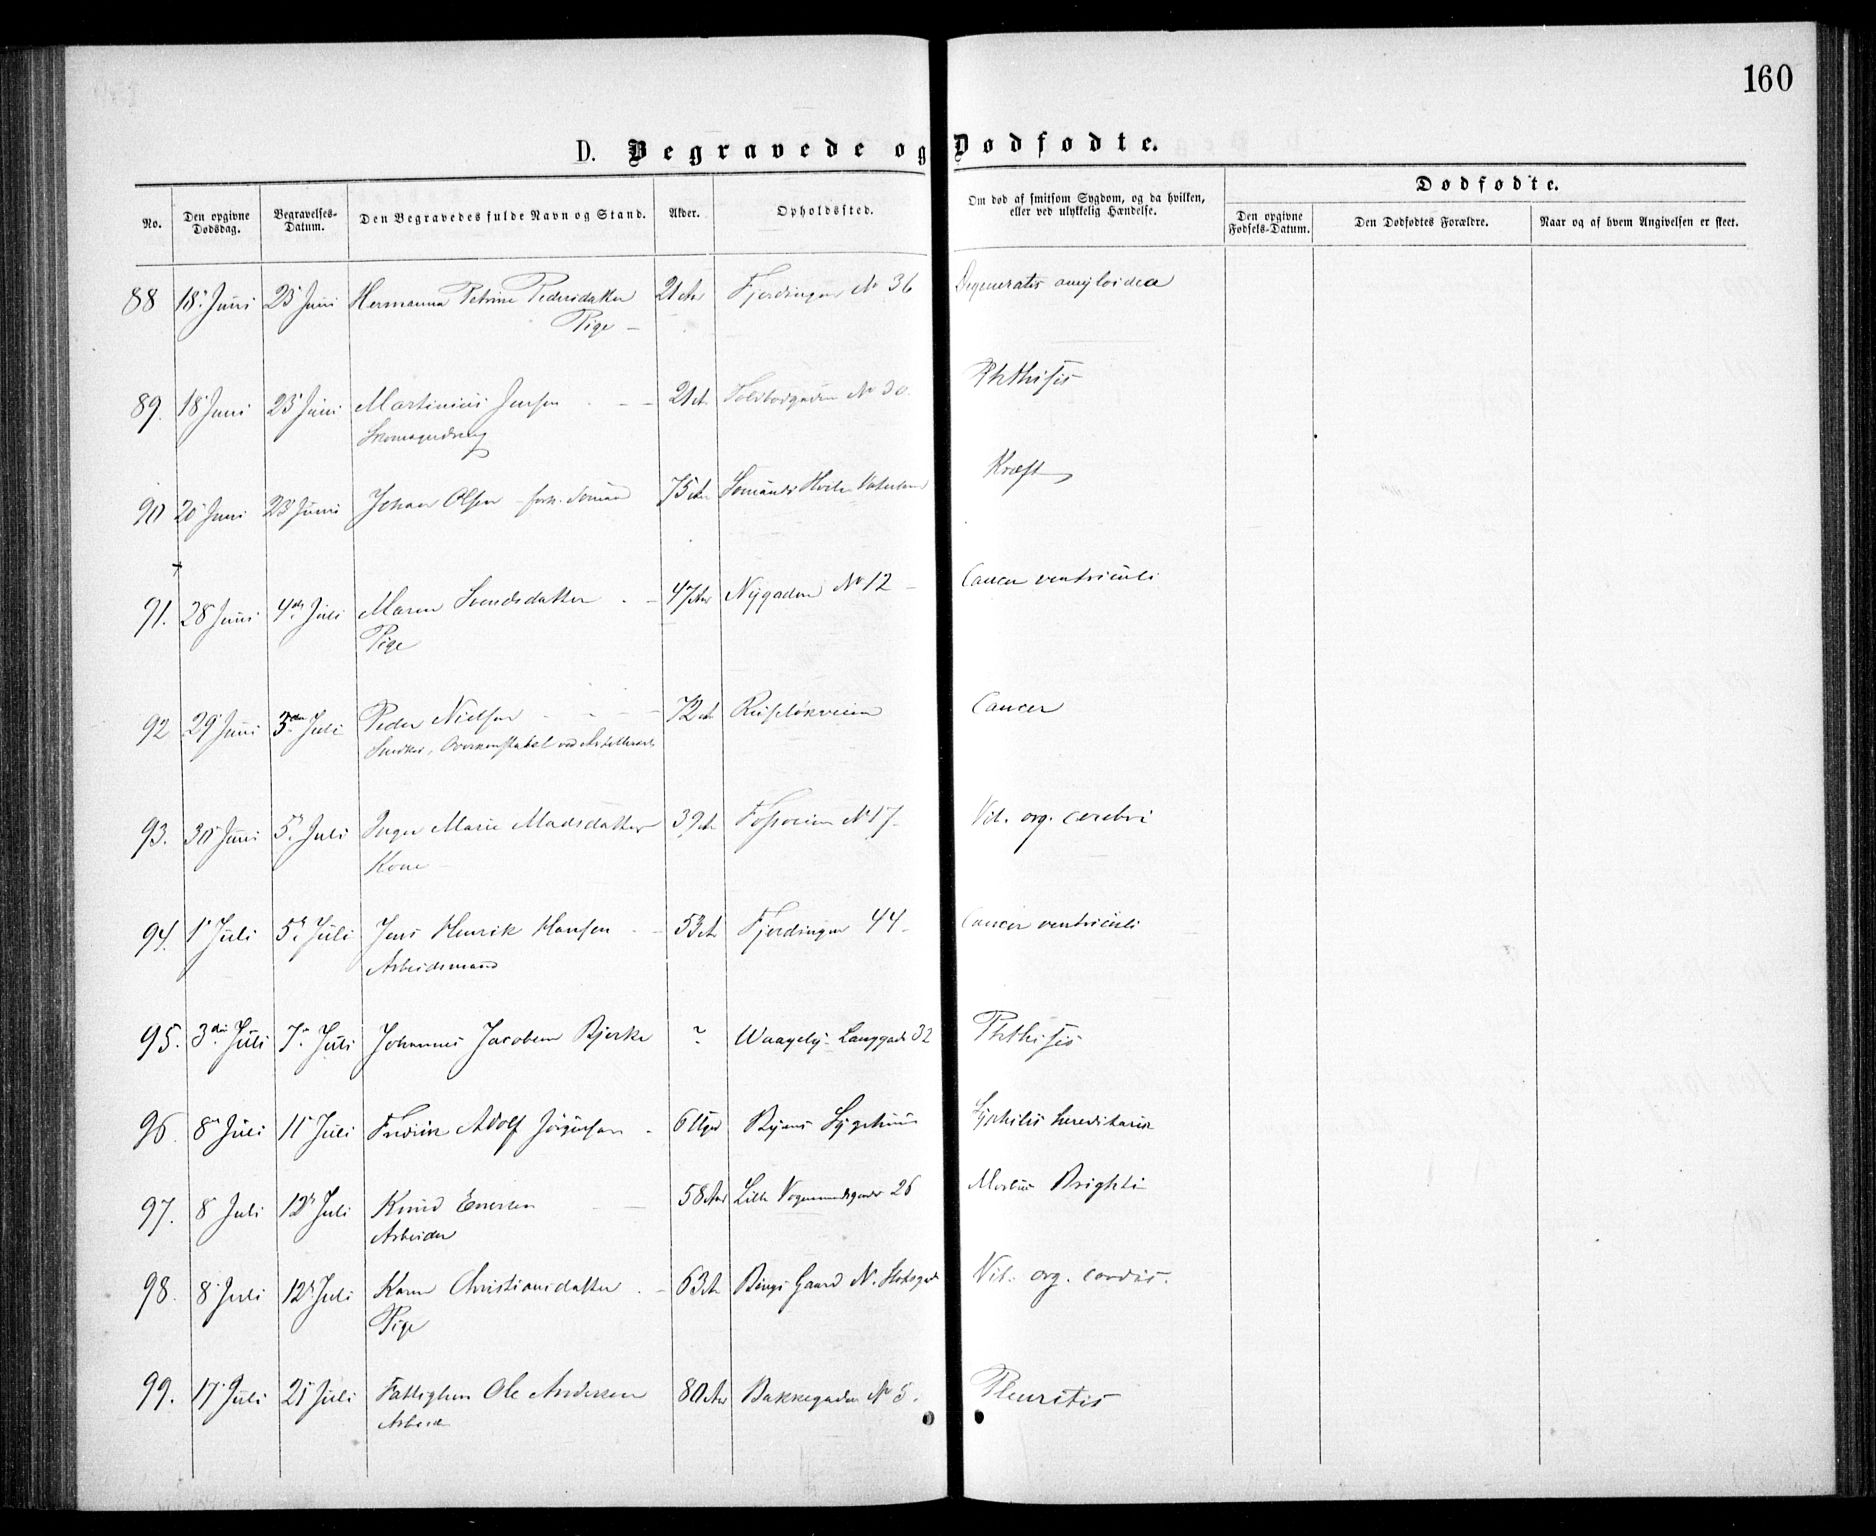 160
D. Begravede og Dødfødte.
No. Den opgivne Dødsdag. Begravelses-Datum. Den Begravedes fulde Navn og Stand. Alder. Opholdssted. Om død af smitsom Sygdom, og da hvilken, eller ved ulykkelig Hændelse. Dødfødte.
Den opgivne Fødsels-Datum. Den Dødfødtes Forældre. Naar og af hvem Angivelsen er skeet.
88 18 Juni 23 Juni Hermanna Petrine Pedersdatter 21 Aar Fjerdingen No 36 Degeneratio amyloidea
Pige
89. 18 Juni 23 Juni Martinius Jensen 21 A Toldbodgaden No 30 Phthisis
Skomagerdreng
90 20 Juni 23 Juni Johan Olsen forh. Sømand 75 Aar Kræft
91. 28 Juni 4de Juli Maren Svendsdatter 47 Aar Nygaden No 12 Cancer ventriculi
Pige
92 29 Juni 3die Juli Peder Nielsen 72 A Ruseløkveien Cancer
Snedker, Overkonstabel ved
93. 30 Juni 5. Juli Inger Marie Madsdatter 39 A Fossveien No 17 Vit. org. cerebri
Kone
94. 1 Juli 5. Juli Jens Henrik Hansen 53 A Fjerdingen 44 Cancer ventriculi
Arbeidsmand
95. 3die Juli 7. Juli Johannes Jacobsen Bjerke ? Langgade 32 Phthisis
96. 8 Juli 11 Juli Fredrik Adolf Jørgensen 6 Uger Byens Sygehuus Syphilis hereditaria
97. 8 Juli 12 Juli Knud Eversen 58 Aar Lille Vognmandsgade 26 Morbus Brighti
Arbeider
98. 8 Juli 12 Juli Karen Christiansdatter 63 A Bings Gaard N. Slotsgade Vit. org. cordis.
Pige
99. 17 Juli 21 Juli Fattiglem Ole Andersen 80 Aar Bakkegaden No 5. Pleuritis
Arbeid